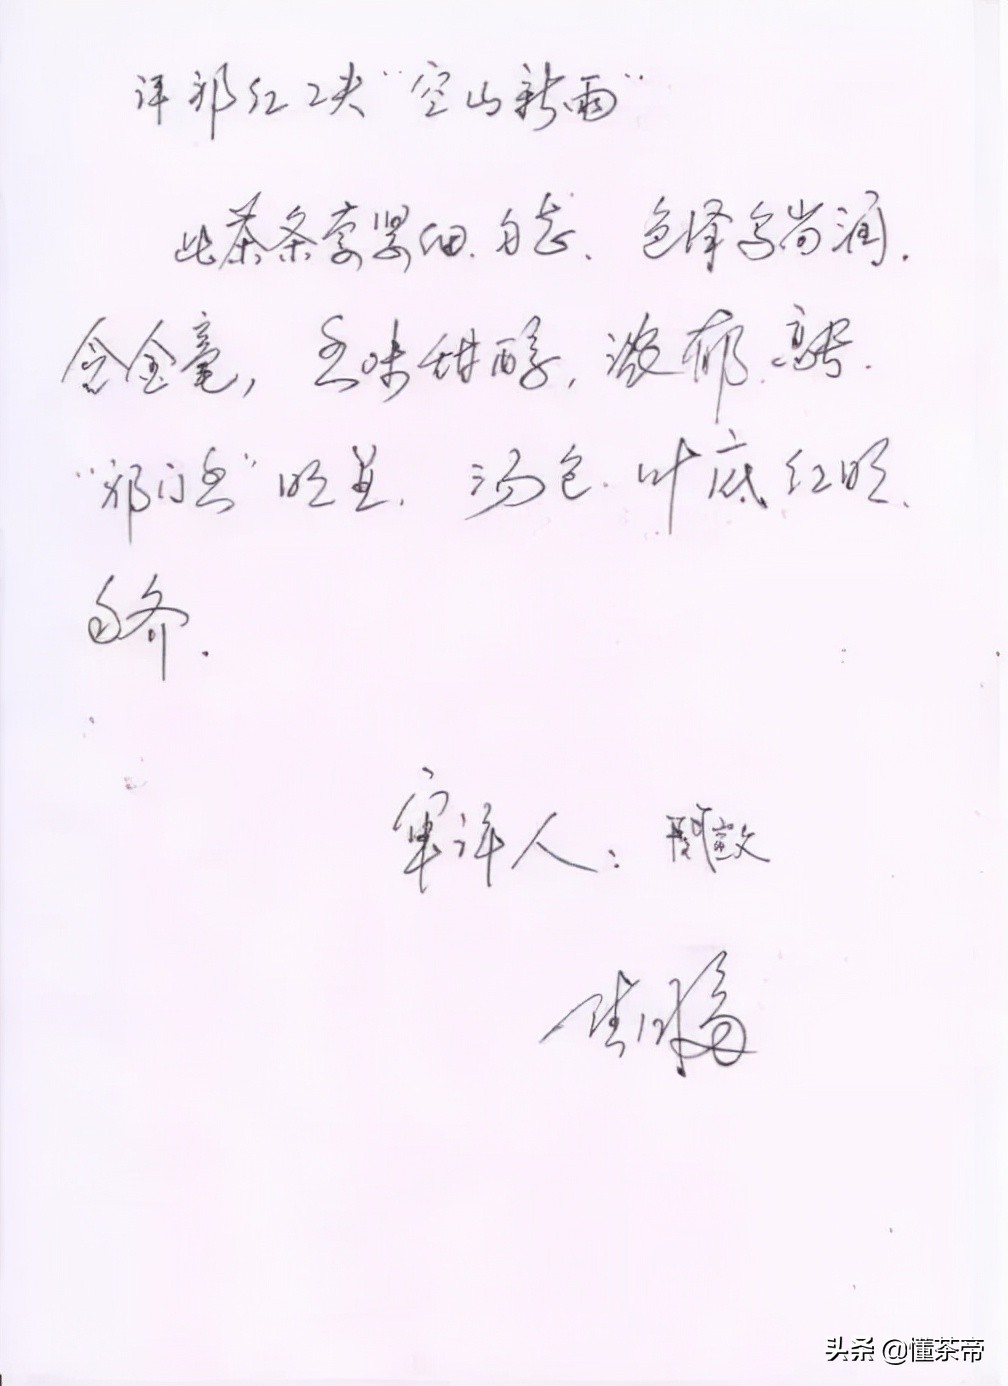 评祁红工夫“空山新雨”
此茶条索紧细、匀、色泽乌尚润.
含金毫，香味甜醇，浓郁、高.
“祁门香”明显. 汤色、叶底红明、
匀齐.
审评人：
头条 @懂茶帝